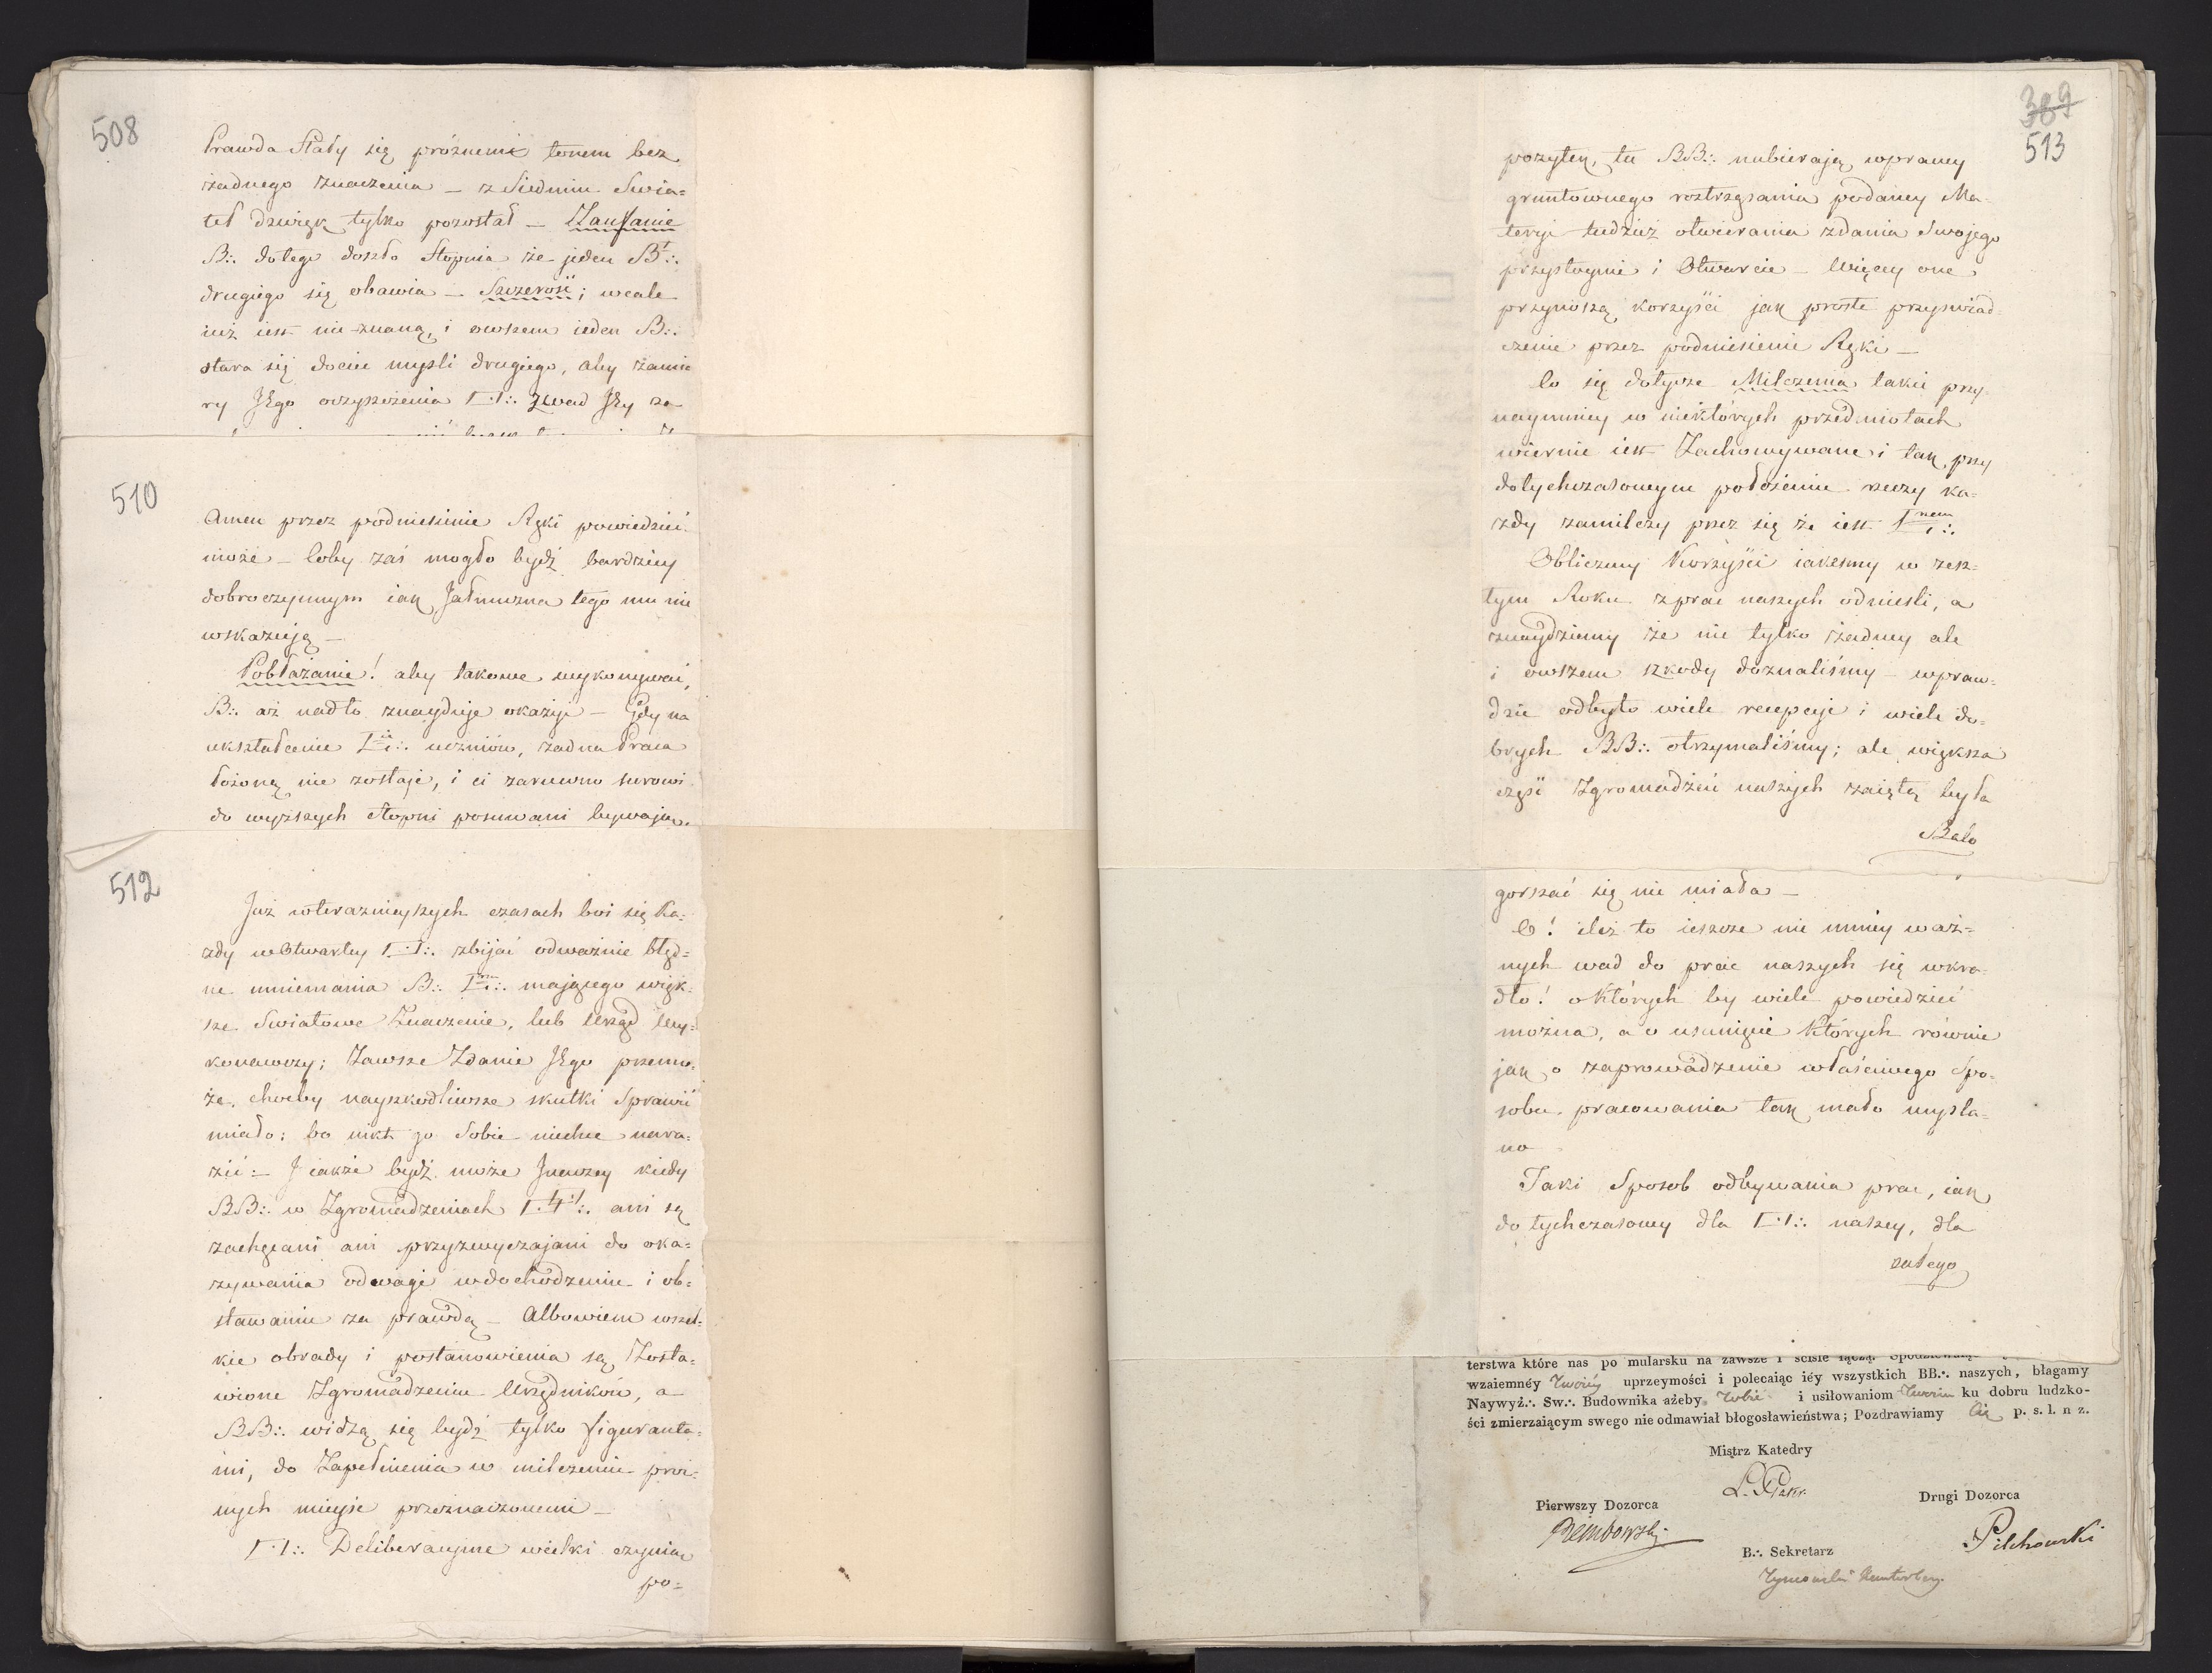 508
Prawda Stały się próżnemi tonem bez
żadnego znaczenia – z Siedmiu Swia=
teł dzwięk tylko pozostał – Zaufanie
B:. do tego doszło Stopnia że jeden Bt:.
drugiego się obawia – Szczerość; wcale
iuż iest nie znaną, i owszem ieden B:.
stara się dociec myśli drugiego, aby zamia
ry Jego oczyszczenia
510
Amen przez podniesienie Ręki powiedzieć
może – Coby zaś mogło bydź bardziey
dobroczynnym iak Jałmużna tego mu nie
wskazują –
Pobłażanie! aby takowe wykonywać,
B:. aż nadto znayduje okazyi – Gdy na
ukształcenie uczniów, żadna Praca
łożoną nie zostaje, i ci zarówno surowi
do wyższych Stopni posuwani bywają.
512
Już w teraznieyszych czasach boi się Ka=
żdy w Otwartey zbijać odważnie błęd=
ne mniemania B:. mającego więk=
sze Swiatowe Znaczenie, lub Urząd Wy=
konawczy; Zawsze Zdanie Jego przemo=
że, choćby nayszkodliwsze skutki Sprawić
miało; bo nikt go Sobie niechce nara=
zić :– J iakże bydź może Jnaczey kiedy
BB:. w Zgromadzeniach ani są
zachęcani ani przyzwyczajani do oka=
zywania odwagi w dochodzeniu i ob=
stawaniu za prawdą – Albowiem wszel=
kie obrady i postanowienia są Zosta=
wione Zgromadzeniu Urzędników, a
BB:. widzą się bydź tylko figuranta=
mi, do Zapełnienia w milczeniu proż=
nych mieysc przeznaczonemi –
Deliberacyine wielki czynią
po=
389
513
pożytek, tu BB:. nabierają wprawy
gruntownego roztrząsania podaney Ma=
teryi tudzież otwierania zdania Swojego
przystoynie i Otwarcie – Więcey one
przynoszą korzyści jak proste przyswiad=
czenie przez podniesienie Ręki –
Co się dotycze Milczenia takie przy
naymniey w niektórych przedmiotach
wiernie iest Zachowywane i tak, przy
dotychczasowym położeniu rzeczy ka=
żdy zamilczy przez się że iest
Obliczmy Korzyści iakeśmy w zesz=
łym Roku z prac naszych odnieśli, a
znaydziemy że nie tylko żadney ale
i owszem szkody doznaliśmy – wpraw=
dzie odbyto wiele recepcyi i wiele do=
brych BB:. otrzymaliśmy; ale większa
część Zgromadzeń naszych zaiętą była
Balo
gorszać się nie miała –
O! ileż to ieszcze nie mniey waż=
nych wad do prac naszych się wkra=
dło! o Których by wiele powiedzieć
można, a o usunięcie Których równie
jak o zaprowadzenie właściwego Spo=
sobu pracowania tak mało myśla=
no
Taki Sposob odbywania prac, iak
do tychczasowy dla naszey, dla
całego
terstwa które nas po mularsku na zawsze i ściśle łączą.
wzaiemnéy Twoiéy uprzeymości i polecaiąc iéy wszystkich BB.·. naszych, błagamy
Naywyż.·. Sw.·. Budownika ażeby Tobie i usiłowaniom Twoim ku dobru ludzko-
ści zmierzaiącym swego nie odmawiał błogosławieństwa; Pozdrawiamy Cię p. s. l. n z.
Mistrz Katedry
Pierwszy Dozorca
Drugi Dozorca
Dembowski
Pilchowski
B.·. Sekretarz